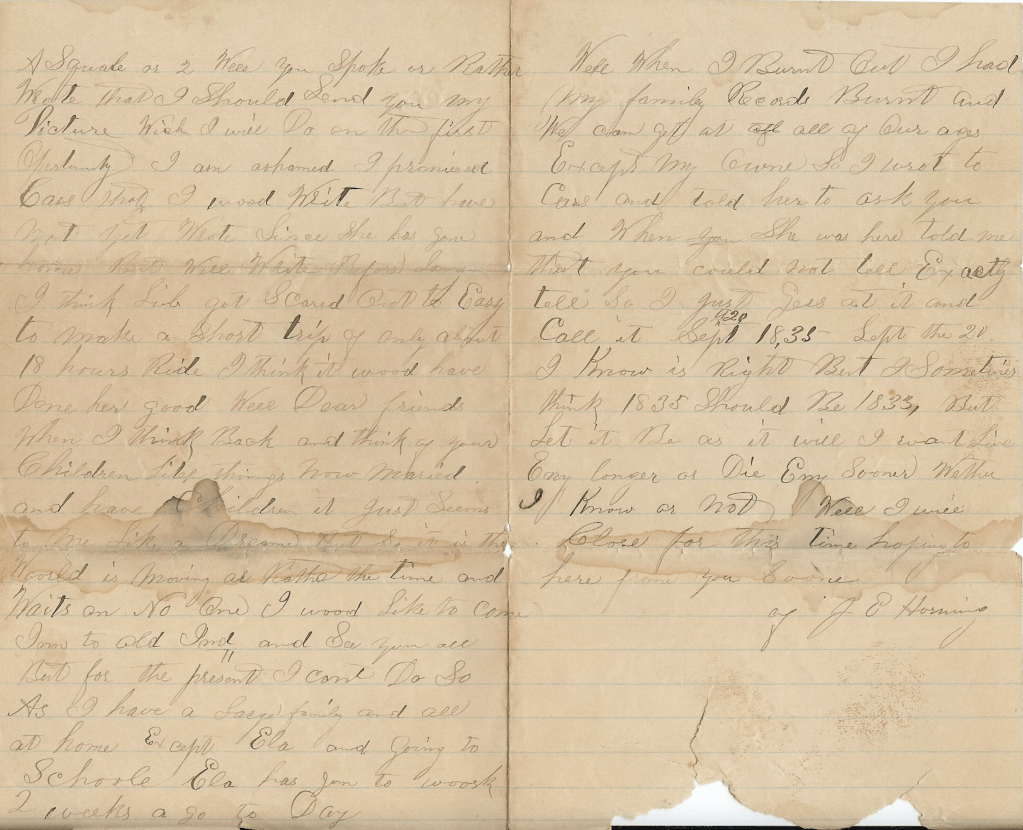 A Square or 2 Well you Spoke or Rather
Wrote that I Should Send you my
Picture Wich I will Do on the first
Opertunity I am ashamed I promiced
Case that I wood Write But have
not yet Wrote Since She has gone
home But Will Write Before Long
I think Lib got Scared Out to Easy
to make a Short trip of only about
18 hours Ride I think it wood have
Done her good Well Dear friends
When I think Back and think of your
Children Litle things Now Maried
and have Children it Just Seems
to Me Like a Dreame But So it is the
World is Moving as Rathe the time and
Waits on No One I wood Like to come
Inn to old Ind, and See you all
But for the present I cant Do So
As I have a Large family and all
at home Except Ela and going to
Schoole Ela has gon to woork
2 weeks a go to Day
Well When I Burnt Out I had
My family Records Burnt and
We can get at all of Our ages
Except My Owne So I wrot to
Case and told her to ask you
and When you She was here told me
that you could not tell Exactly
tell So I Just Jess at it and
Call it Sept 20 1835 Sept the 20
I Know is Right But I Sometimes
think 1835 Should Be 1833, But
Let it Be as it will I want Live
Eny longer or Die Eny Sooner Wether
I Know or Not Well I will
Close for this time hoping to
here frome you Soone
of J E Horning